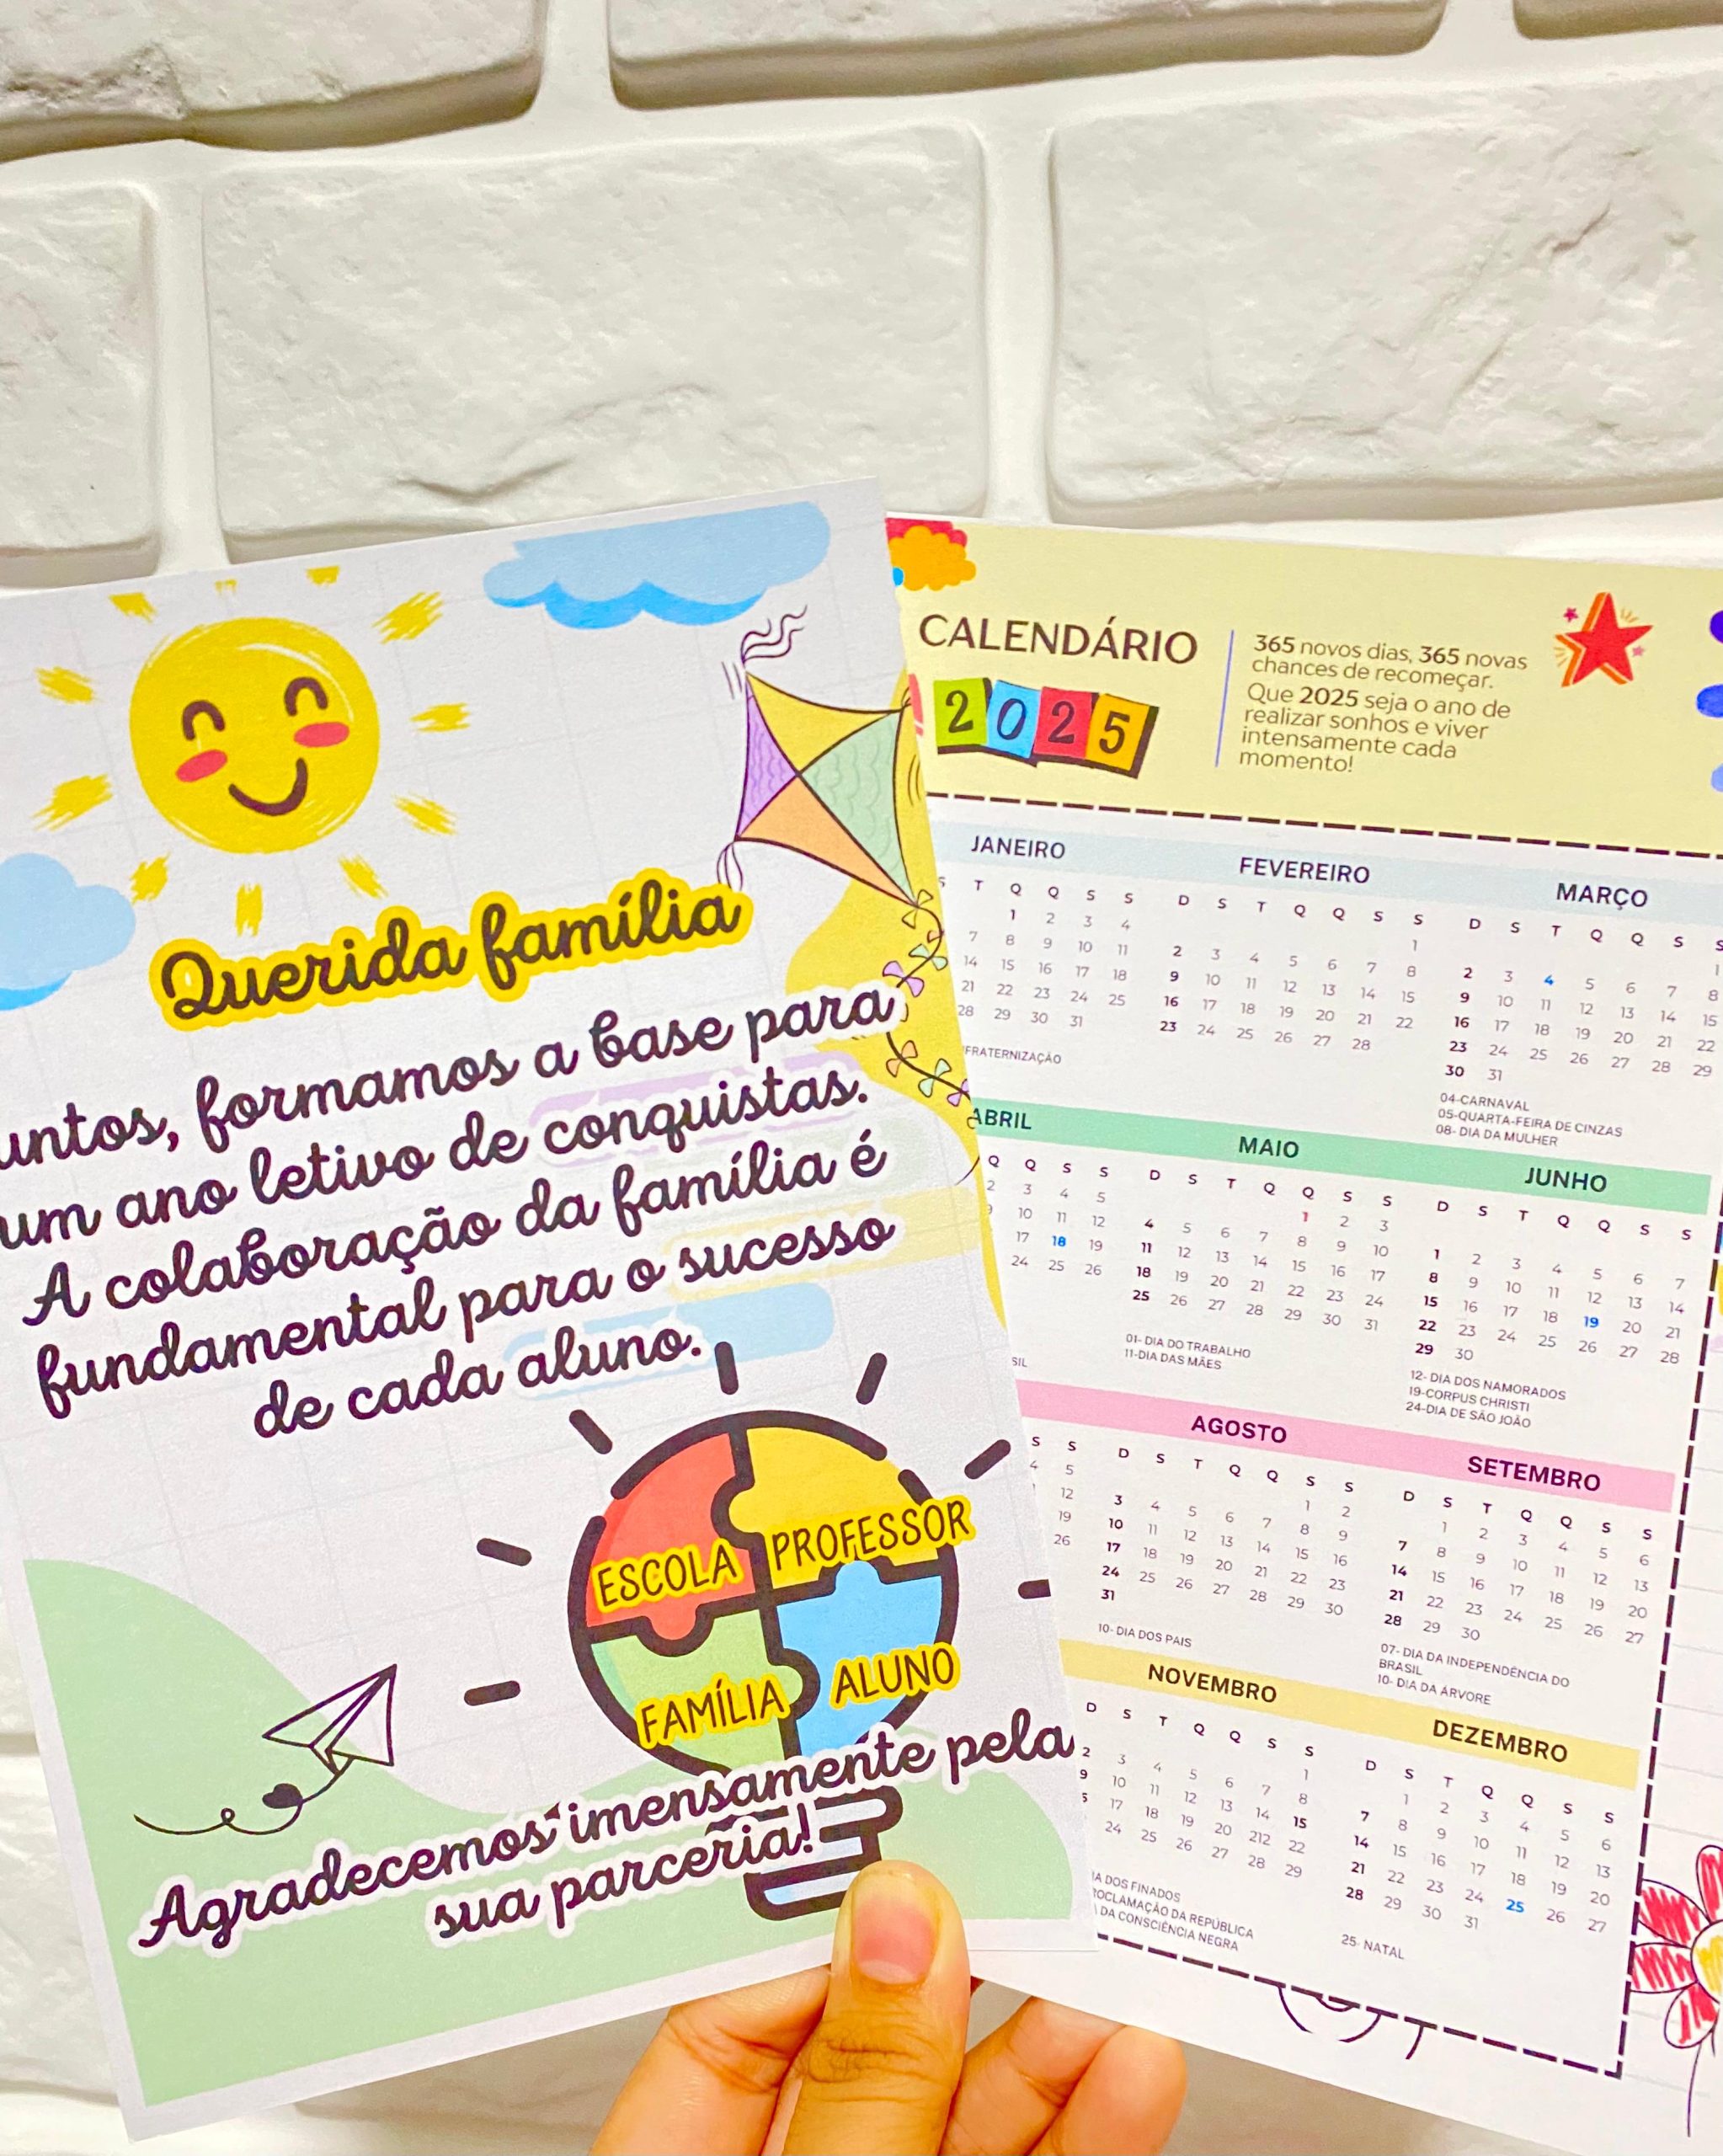 Querida família
untos, formamos a base para
um ano letivo de conquistas.
A colaboração da família é
fundamental para o sucesso
de cada aluno.
ESCOLA PROFESSOR
FAMÍLIA ALUNO
Agradecemos imensamente pela
sua parceria!
CALENDÁRIO
2025
365 novos dias, 365 novas
chances de recomeçar.
Que 2025 seja o ano de
realizar sonhos e viver
intensamente cada
momento!
JANEIRO
S T Q Q S S
1 2 3 4
7 8 9 10 11
14 15 16 17 18
21 22 23 24 25
28 29 30 31
FRATERNIZAÇÃO
FEVEREIRO
D S T Q Q S S
1
2 3 4 5 6 7 8
9 10 11 12 13 14 15
16 17 18 19 20 21 22
23 24 25 26 27 28
MARÇO
D S T Q Q S S
1
2 3 4 5 6 7 8
9 10 11 12 13 14 15
16 17 18 19 20 21 22
23 24 25 26 27 28 29
30 31
04-CARNAVAL
05-QUARTA-FEIRA DE CINZAS
08- DIA DA MULHER
ABRIL
Q Q S S
2 3 4 5
9 10 11 12
17 18 19
24 25 26
SIL
MAIO
D S T Q Q S S
1 2 3
4 5 6 7 8 9 10
11 12 13 14 15 16 17
18 19 20 21 22 23 24
25 26 27 28 29 30 31
01- DIA DO TRABALHO
11-DIA DAS MÃES
JUNHO
D S T Q Q S S
1 2 3 4 5 6 7
8 9 10 11 12 13 14
15 16 17 18 19 20 21
22 23 24 25 26 27 28
29 30
12- DIA DOS NAMORADOS
19-CORPUS CHRISTI
24-DIA DE SÃO JOÃO
S S
4 5
12
19
26
AGOSTO
D S T Q Q S S
1 2
3 4 5 6 7 8 9
10 11 12 13 14 15 16
17 18 19 20 21 22 23
24 25 26 27 28 29 30
31
10- DIA DOS PAIS
SETEMBRO
D S T Q Q S S
1 2 3 4 5 6
7 8 9 10 11 12 13
14 15 16 17 18 19 20
21 22 23 24 25 26 27
28 29 30
07- DIA DA INDEPENDÊNCIA DO
BRASIL
10- DIA DA ÁRVORE
NOVEMBRO
D S T Q Q S S
1
2 3 4 5 6 7 8
9 10 11 12 13 14 15
17 18 19 20 212 22
24 25 26 27 28 29
IA DOS FINADOS
ROCLAMAÇÃO DA REPÚBLICA
DA CONSCIÊNCIA NEGRA
DEZEMBRO
D S T Q Q S S
1 2 3 4 5 6
7 8 9 10 11 12 13
14 15 16 17 18 19 20
21 22 23 24 25 26 27
28 29 30 31
25- NATAL